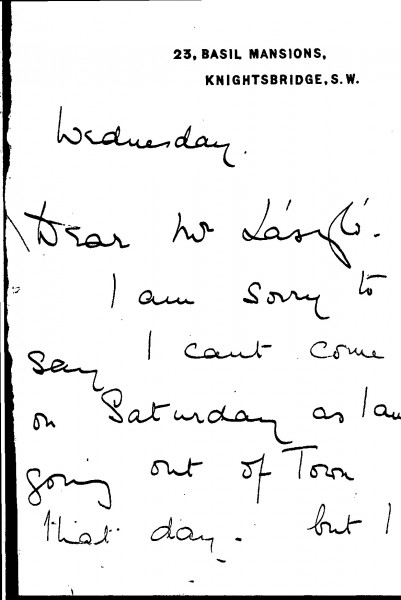 23, BASIL MANSIONS,
KNIGHTSBRIDGE, S.W.
Wednesday.
Dear Mr László.
I am sorry to
say I cant come
on Saturday as I am
going out of Town
that day. but I